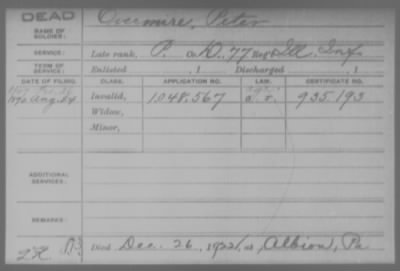 DEAD
NAME OF SOLDIER: Overmire, Peter
SERVICE: Late rank, P. Co. D, 77 Reg't Ill. Inf.
TERM OF SERVICE: Enlisted , 1 Discharged , 1
DATE OF FILING. CLASS. APPLICATION NO. LAW. CERTIFICATE NO.
1890 Aug. 24 Invalid, 1.048.567 935.193
Widow,
Minor,
ADDITIONAL SERVICES:
REMARKS:
Died Dec. 26, 1922, at Albion, Pa